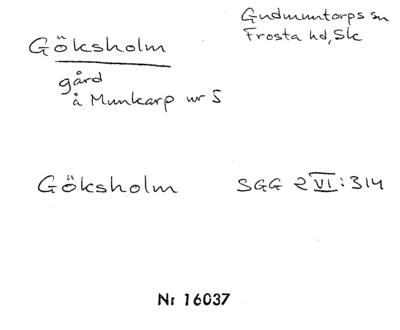 Göksholm
Gudmuntorps sn
Frosta hd, Sk
gård
å Munkarp nr 5
Göksholm SGG 2 VI:314
Nr 16037